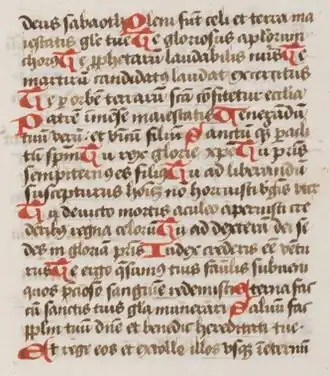 deus sabaoth Pleni sunt celi et terra ma
iestatis gle tue Te gloriosus aplorum
chorus Te pphetarum laudabilis nuus Te
martirum candidatus laudat exercitus
Te per orbem terrarum sca confitetur ecclia
Patrem imense maiestatis Venerandum
tuum verum et vnicum filium Sanctum qz pacli
tum spm Tu rex glorie xpe Tu pris
sempiternus es filius Tu ad liberandum
suscepturus hoiem no horruisti vgis vte
Tu deuicto mortis aculeo aperuisti cre
dentibus regna celorum Tu ad dexteram dei se
des in gloria pris Iudex crederis ee ventu
rus Te ergo qsumus tuis famulis subueni
quos precioso sanguine redemisti Eterna fac
cu sanctis tuis gla munerari Saluum fac
pplm tuu dne et benedic hereditati tue
Et rege eos et extolle illos vsqz in eternum